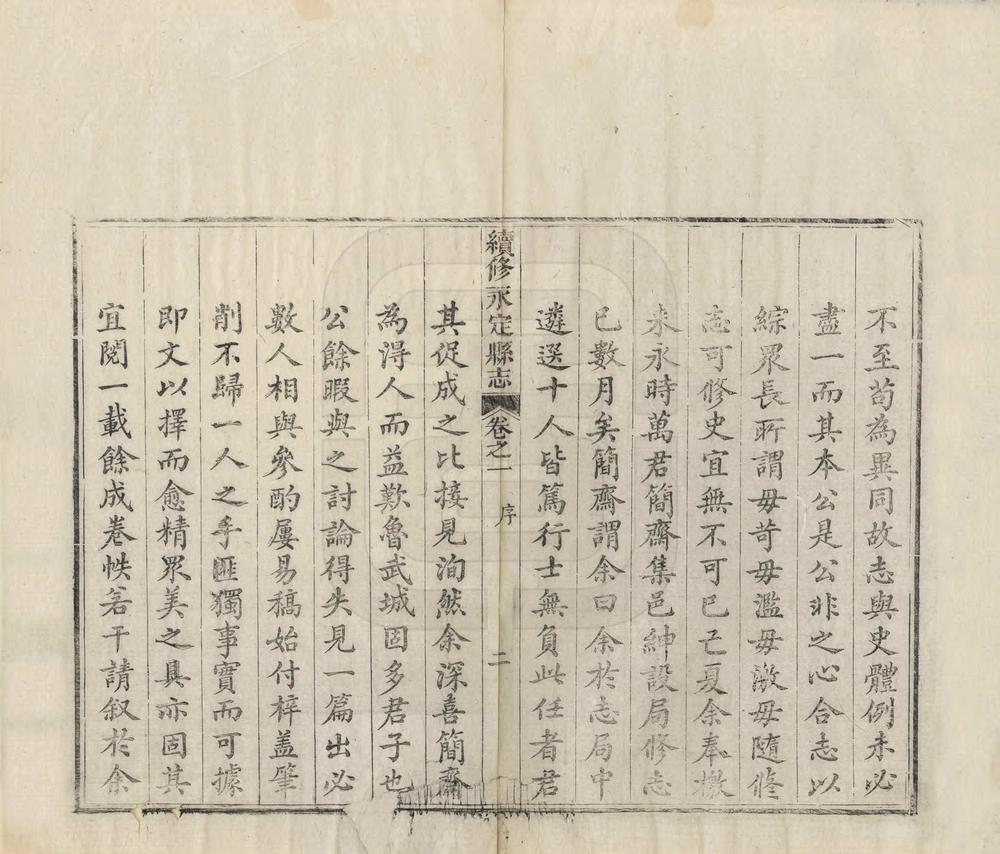 不至苟為異同故志與史體例未必
盡一而其本公是公非之心合志以
綜眾長所謂毋苛毋濫毋激毋隨修
志可修史宜無不可已亡夏余奉檄
来永時萬君簡齋集邑紳設局修志
已數月矣簡齋謂余曰余於志局中
遴選十人皆篤行士無負此任者君
續修永定縣志 卷之一 序 二
其促成之比接見洵然余深喜簡齋
為得人而益歎魯武城固多君子也
公餘暇與之討論得失見一篇出必
數人相與參酌屢易稿始付梓盖筆
削不歸一人之手匪獨事實而可據
即文以擇而愈精眾美之具亦固其
宜閱一載餘成卷帙若干請叙於余